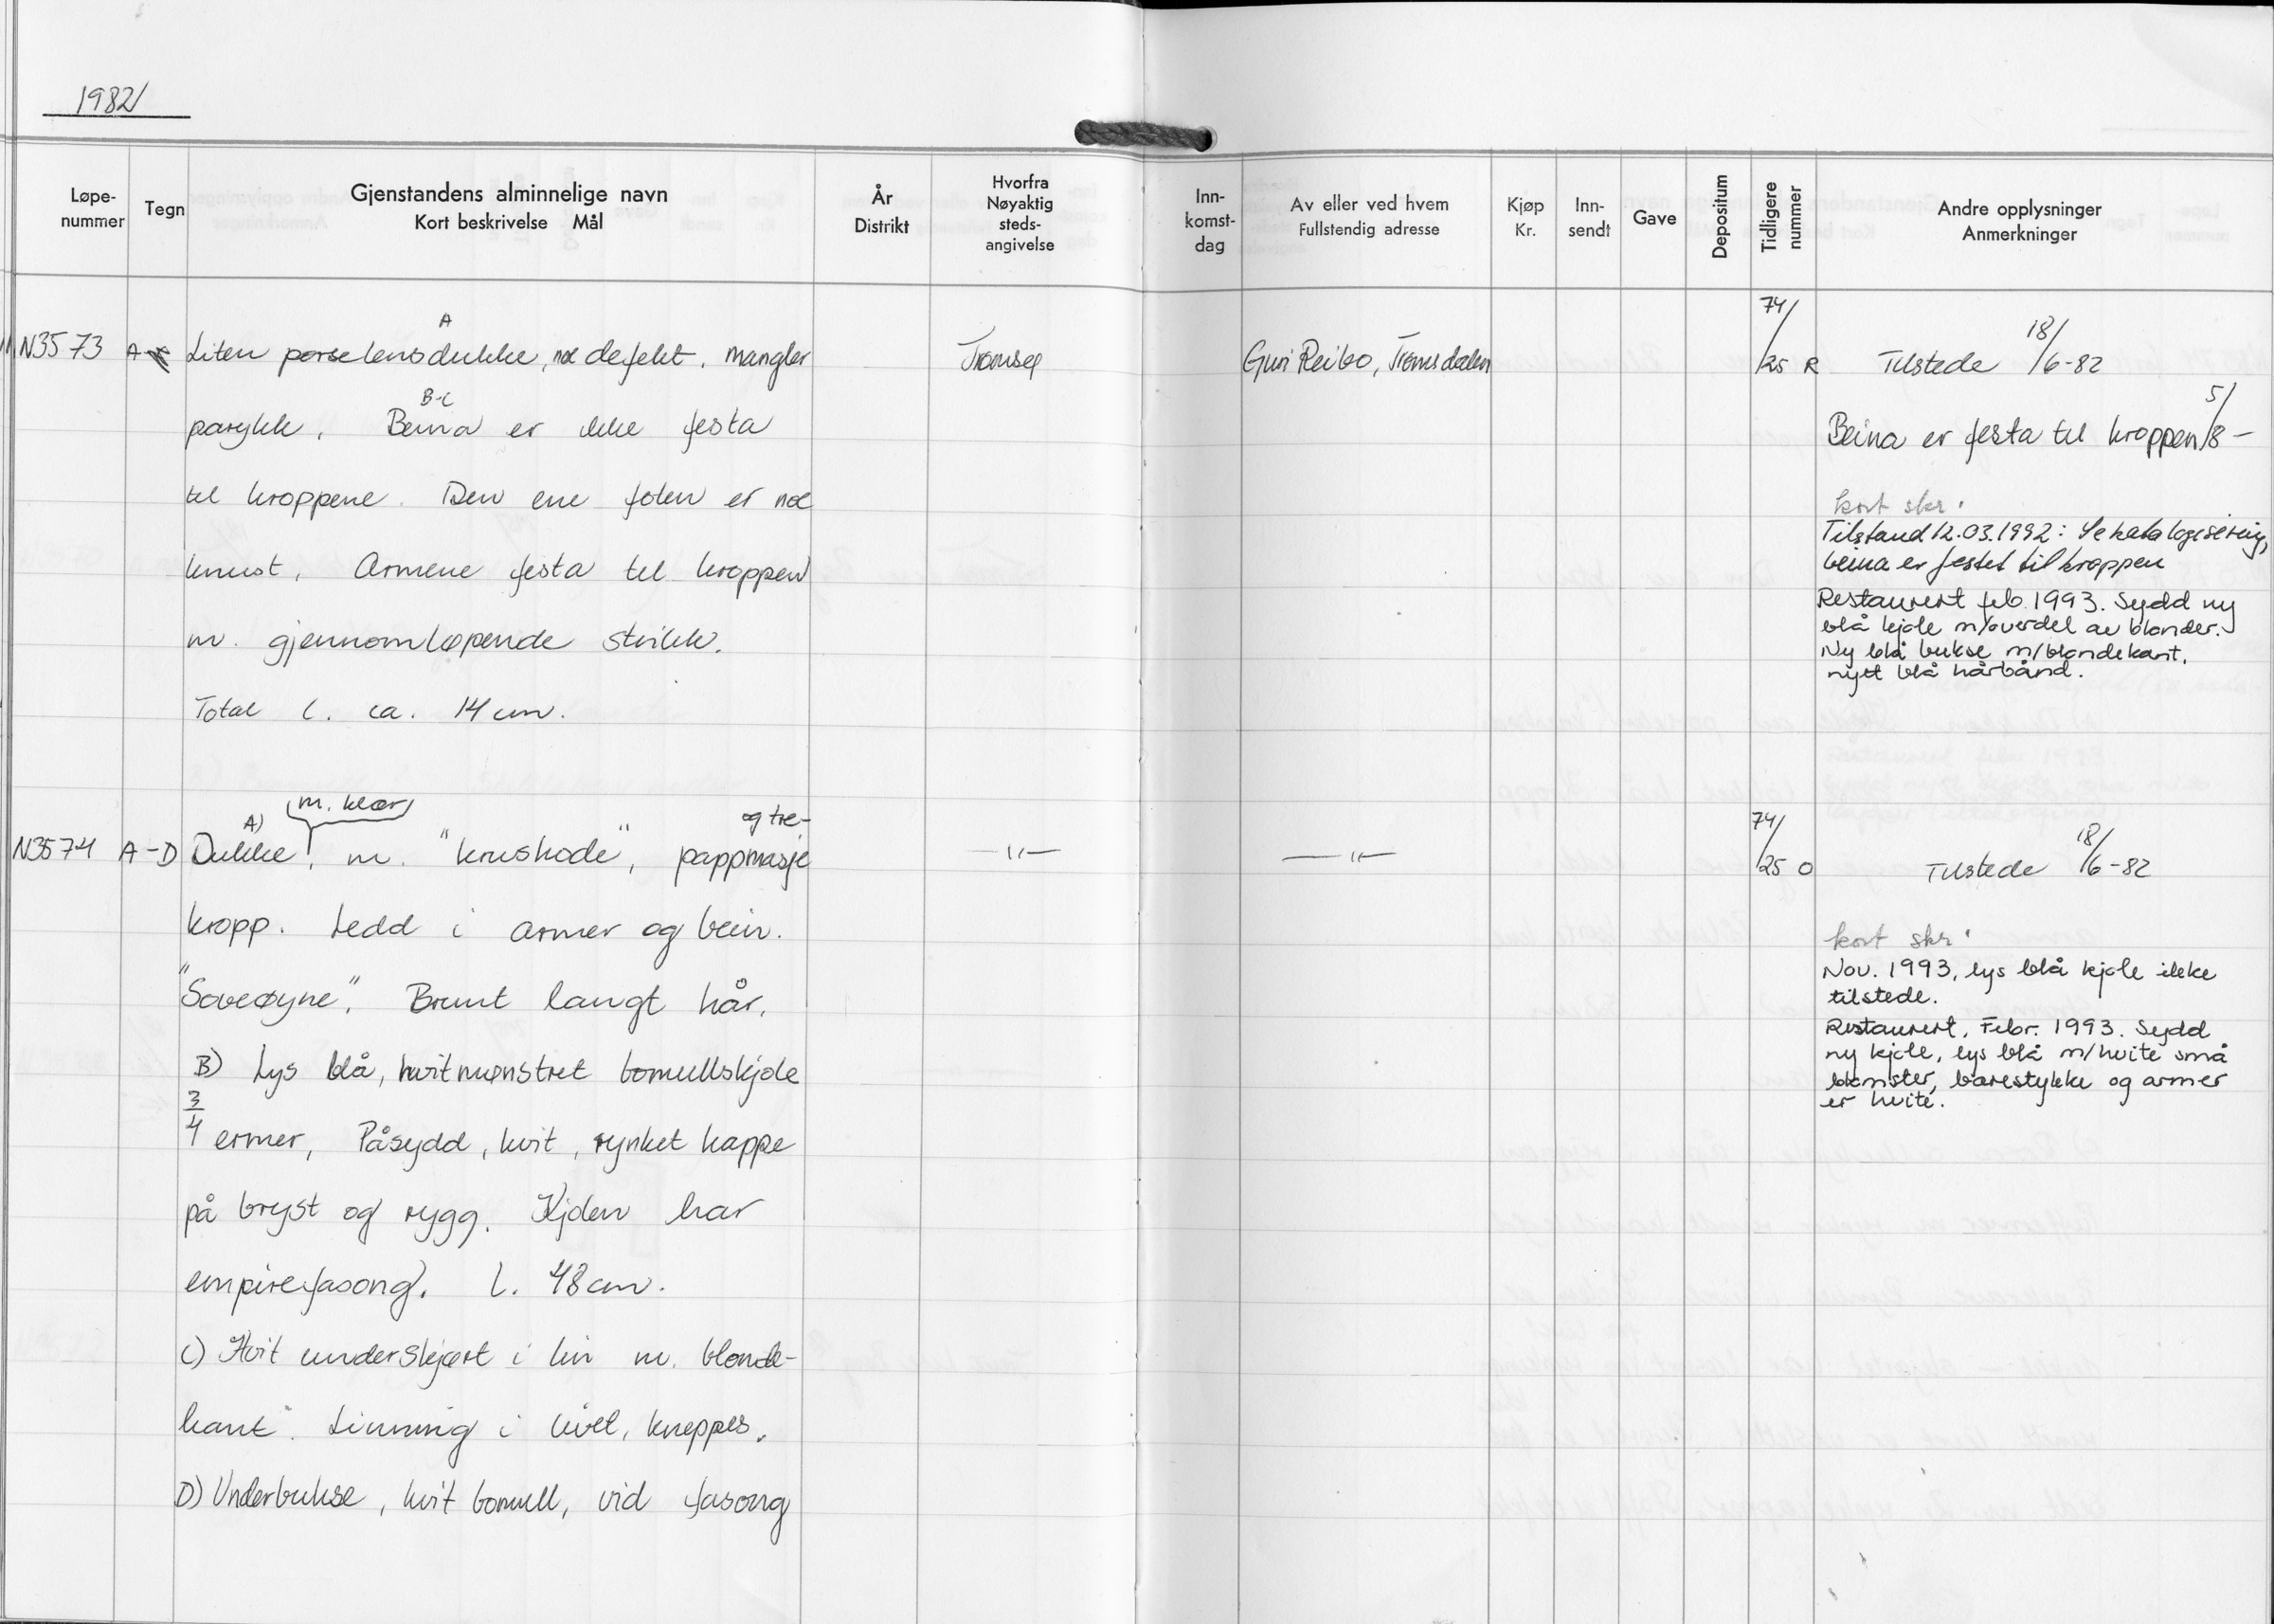 1982
Løpe-
nummer
Tegn
Gjenstandens alminnelige navn
Kort beskrivelse Mål
År
Distrikt
Hvorfra
Nøyaktig
steds-
angivelse
Inn-
komst-
dag
Av eller ved hvem
Fullstendig adresse
Kjøp
Kr.
Inn-
sendt
Gave
Depositum
Tidligere
nummer
Andre opplysninger
Anmerkninger
N3573 A
A
Liten porselensdukke, noe defekt. Mangler
B-C
parykk. Beina er ikke festa
til kroppene. Den ene foten er noe
knust. Armene festa til kroppen
m. gjennomløpende strikk.
Total l. ca. 14 cm.
Tromsø
Guri Reibo, Tromsdalen
74/
25 R
Tilstede 18/6-82
Beina er festa til kroppen 5/8 -
kort skr.
Tilstand 12.03.1992: Se katalogisering,
beina er festet til kroppen
Restaurert feb. 1993. Sydd ny
blå kjole m/overdel av blonder.
Ny blå bukse m/blondekant.
nytt blå hårbånd.
N3574 A-D
A) (m. klær) og tre-
Dukke, m. "krushode", pappmasje
kropp. Ledd i armer og bein.
"Soveøyne". Brunt langt hår.
B) Lys blå, hvitmønstret bomullskjole
3/4 ermer, Påsydd, hvit, rynket kappe
på bryst og rygg. Kjolen har
empirefasong. L. 48 cm.
C) Hvit underskjørt i lin m. blonde-
kant. Linning i livet, kneppes.
D) Underbukse, hvit bomull, vid fasong
—"—
—"—
74/
25 O
Tilstede 18/6-82
kort skr.
Nov. 1993, lys blå kjole ikke
tilstede.
Restaurert, Febr. 1993. Sydd
ny kjole, lys blå m/hvite små
blomster, bærestykke og armer
er hvite.